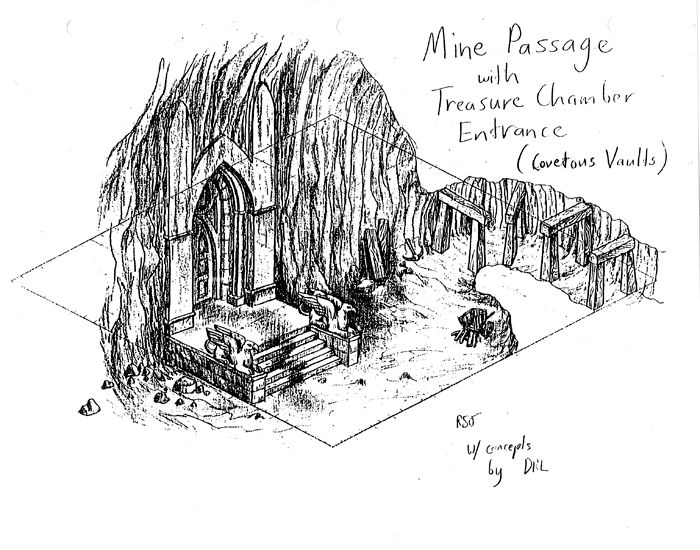 Mine Passage
with
Treasure Chamber
Entrance
(Covetous Vaults)
w/ concepts
by